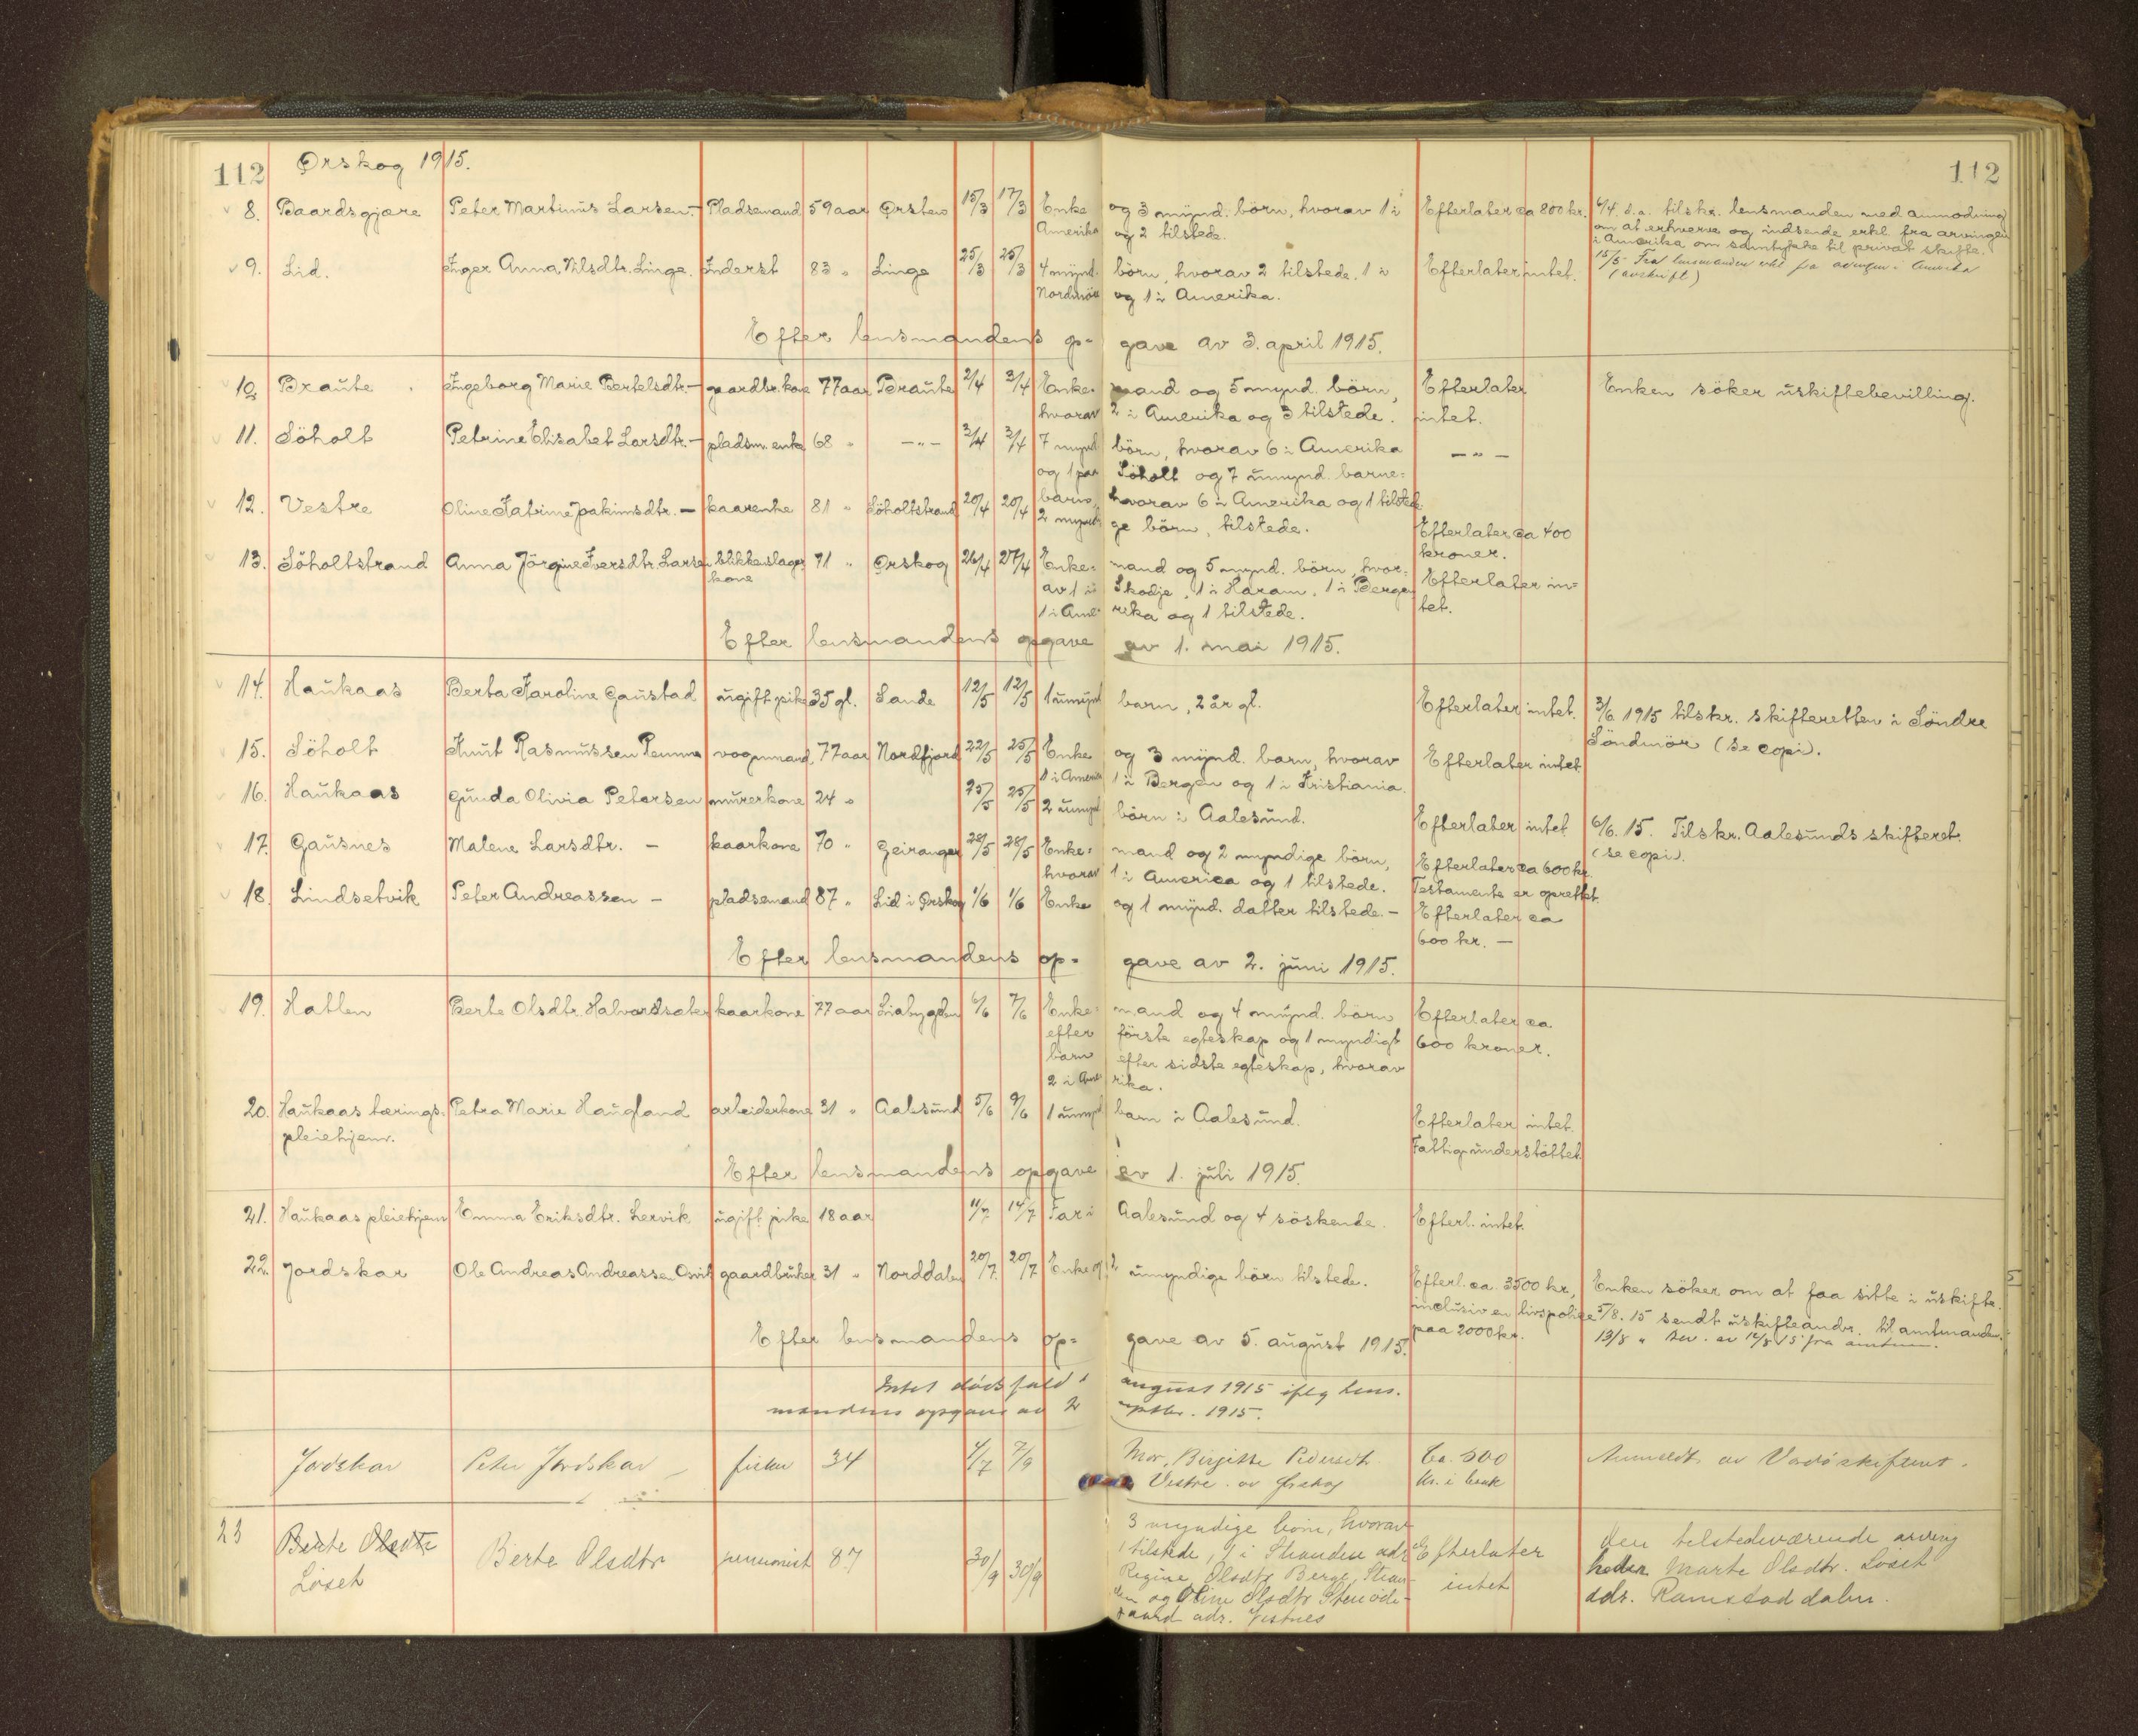 112 Ørskog 1915. 112
8. Baardsgjære Peter Martinus Larsen. - Pladsemand 59 aar Ørsten 15/3 17/3 Enke og 3 mynd. börn, hvorav 1 i Efterlater ca 800 kr. 6/4 d.a. tilskr. lensmanden med anmodning
Amerika og 2 tilstede. om at erhverve og indsende erkl. fra arvingen
i Amerika om samtykke til privat skifte.
9. Lid. Inger Anna Nilsdtr. Linge. Inderst 83 " Linge 25/3 25/3 4 mynd. börn, hvorav 2 tilstede, 1 i Efterlater intet. 15/5 Fra lensmanden erkl. fra arvingen i Amerika
Nordmöre og 1 i Amerika. (avskrift)
Efter lensmandens op- gave av 3. april 1915.
10. Braute Ingeborg Marie Bertelsdtr. - gaardbr. kone 77 aar Braute 2/4 3/4 Enke- mand og 5 mynd. börn, Efterlater Enken söker uskiftebevilling.
hvorav 2 i Amerika og 3 tilstede. intet.
11. Söholt Petrine Elisabet Larsdtr. - pladsm. enke 68 " -"- 3/4 3/4 7 mynd. börn, hvorav 6 i Amerika -"-
og 1 paa Söholt og 7 umynd. barne-
barn, hvorav 6 i Amerika og 1 tilstede
12. Vestre Oline Katrine Joakimsdtr. - kaarenke 81 " Söholtstrand 20/4 20/4 2 myndi- ge börn, tilstede. Efterlater ca 400
kroner.
13. Söholtstrand Anna Jörgine Iversdtr. Larsen blikkenslager 71 " Ørskog 26/4 27/4 Enke- mand og 5 mynd. börn, hvor- Efterlater in-
kone av 1 i Skodje, 1 i Haram, 1 i Bergen tet.
1 i Ame- rika og 1 tilstede.
Efter lensmandens opgave av 1. mai 1915.
14. Haukaas Berta Karoline Gaustad ugift pike 35 gl. Sande 12/5 12/5 1 umynd. barn, 2 år gl. Efterlater intet. 3/6 1915 tilskr. skifteretten i Söndre
Söndmör (se copi).
15. Söholt Knut Rasmussen Temme vognmand, 77 aar Nordfjord 22/5 25/5 Enke og 3 mynd. barn, hvorav Efterlater intet.
1 i Amerika 1 i Bergen og 1 i Kristiania.
16. Haukaas Gunda Olivia Petersen murerkone 24 " 25/5 25/5 2 umynd. börn i Aalesund. Efterlater intet 6/6. 15. Tilskr. Aalesunds skifteret.
(se copi).
17. Gausnes Malene Larsdtr. - kaarkone 70 " Geiranger 28/5 28/5 Enke- mand og 2 myndige börn, Efterlater ca 600 kr.
hvorav 1 i America og 1 tilstede. Testamente er oprettet.
18. Lindsetvik Peter Andreassen - pladsemand 87 " Lid i Ørskog 1/6 1/6 Enke og 1 mynd. datter tilstede. - Efterlater ca
600 kr. -
Efter lensmandens op- gave av 2. juni 1915.
19. Hatlen Berte Olsdtr. Halvardsæter kaarkone 77 aar Liabygden 6/6 7/6 Enke- mand og 4 mynd. börn Efterlater ca
efter förste egteskap og 1 myndigt 600 kroner.
barn efter sidste egteskap, hvorav
2 i Ame- rika.
20. Haukaas tærings- Petra Marie Haugland arbeiderkone 31 " Aalesund 5/6 9/6 1 umynd. barn i Aalesund. Efterlater intet.
pleiehjem. Fattigunderstöttet.
Efter lensmandens opgave av 1. juli 1915.
21. Haukaas pleiehjem Emma Eriksdtr. Lervik ugift pike 18 aar 11/7 14/7 Far i Aalesund og 4 söskende. Efterl. intet.
22. Jordskar Ole Andreas Andreassen Osvik gaardbruker 31 " Norddalen 20/7 20/7 Enke og 2 umyndige börn tilstede. Efterl. ca. 3500 kr., Enken söker om at faa sitte i uskifte.
inclusiv en livspolise 5/8. 15 sendt uskifteandr. til amtmanden.
paa 2000 kr. 13/8 " av 12/8 15 fra amtm.
Efter lensmandens op- gave av 5. august 1915.
Intet dödsfald i august 1915 iflg lens-
mandens opgave av 2 septbr. 1915.
Jordskar Peter Jordskar - fisker 34 4/7 7/9 Mor, Birgitte Pedersdt. Ca. 500 Anmeldt av Vardö skifteret.
Vestre av Ørskog kr. i bank
23 Berte Olsdtr Berte Olsdtr pensionist 87 30/9 30/9 3 myndige börn, hvorav Efterlater den tilstedeværende arving
Löset 1 tilstede, 1 i Stranden adr. intet heder Marte Olsdtr. Löset
Regine Olsdtr Berge, Stran- adr. Ramstaddalen.
den og Oline Olsdtr Steinöde-
gaard adr. Vestnes